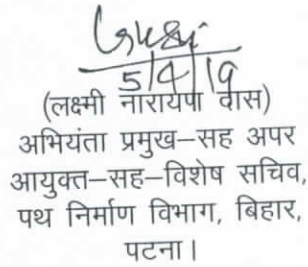 5/4/19
(लक्ष्मी नारायण दास)
अभियंता प्रमुख–सह अपर
आयुक्त–सह–विशेष सचिव,
पथ निर्माण विभाग, बिहार,
पटना।